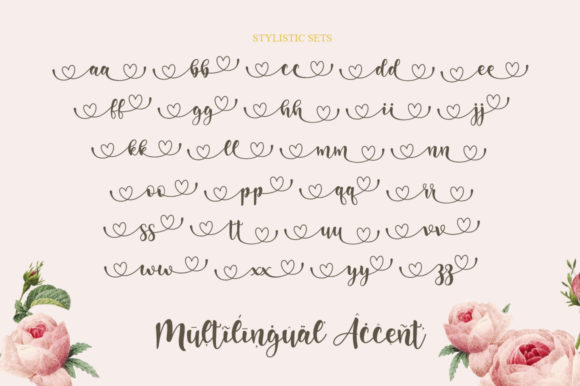 STYLISTIC SETS
aa bb cc dd ee
ff gg hh ii jj
kk ll mm nn
oo pp qq rr
ss tt uu vv
ww xx yy zz
Multilingual Accent